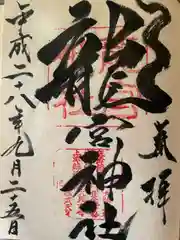 奉拝
龍宮神社
平成二十八年九月二十五日